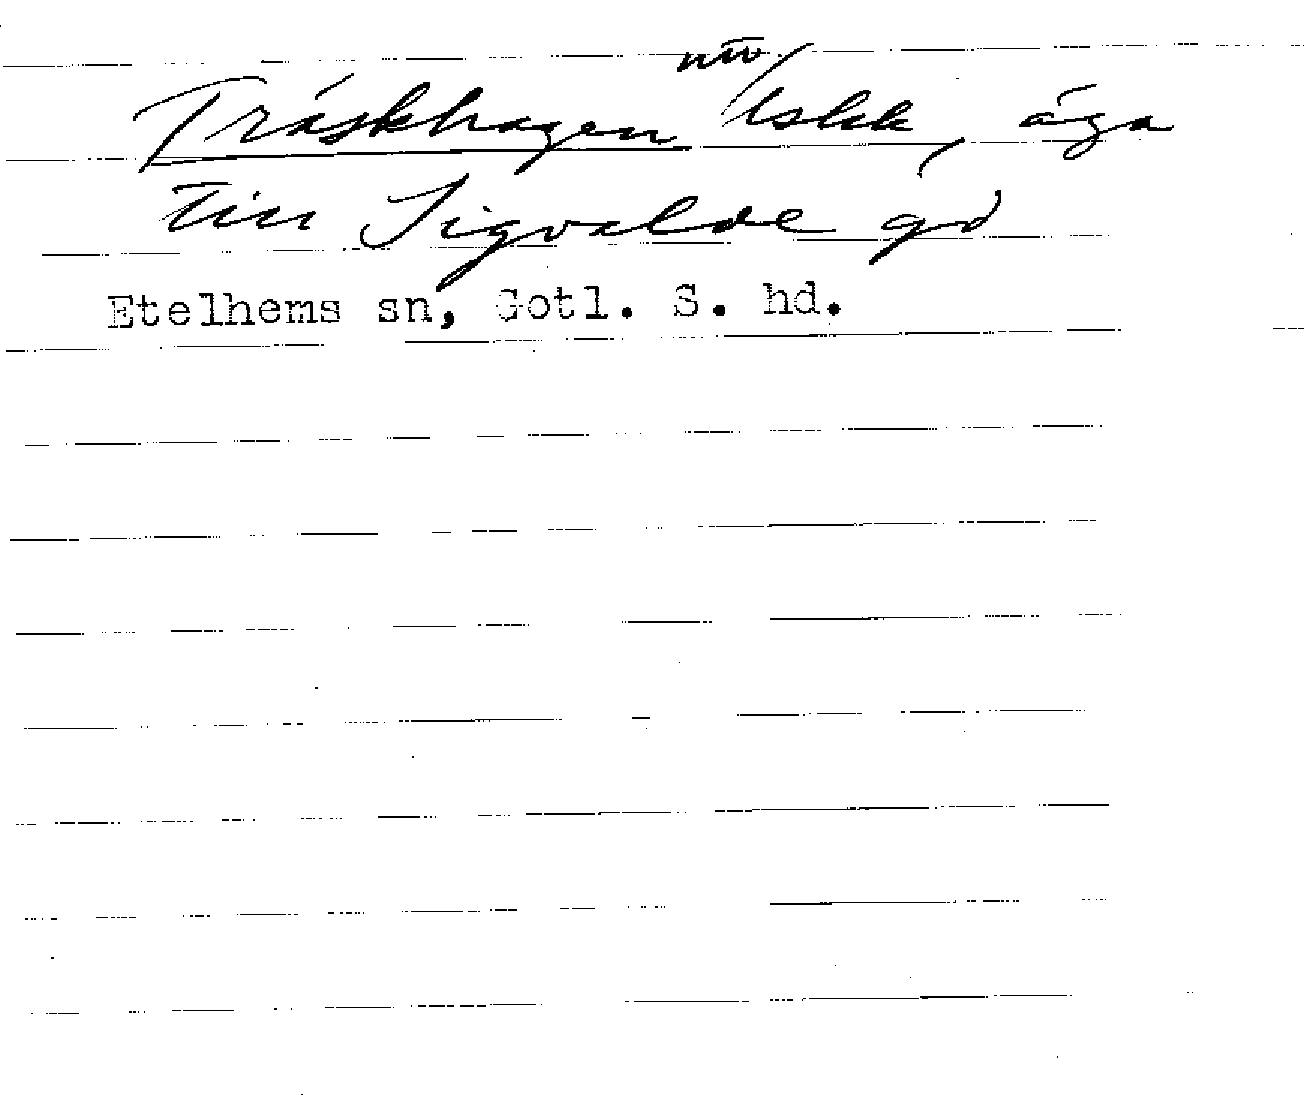 Träskhagen nu/ lskk, äga
till Sigvalde gd
Etelhems sn, Gotl. S. hd.